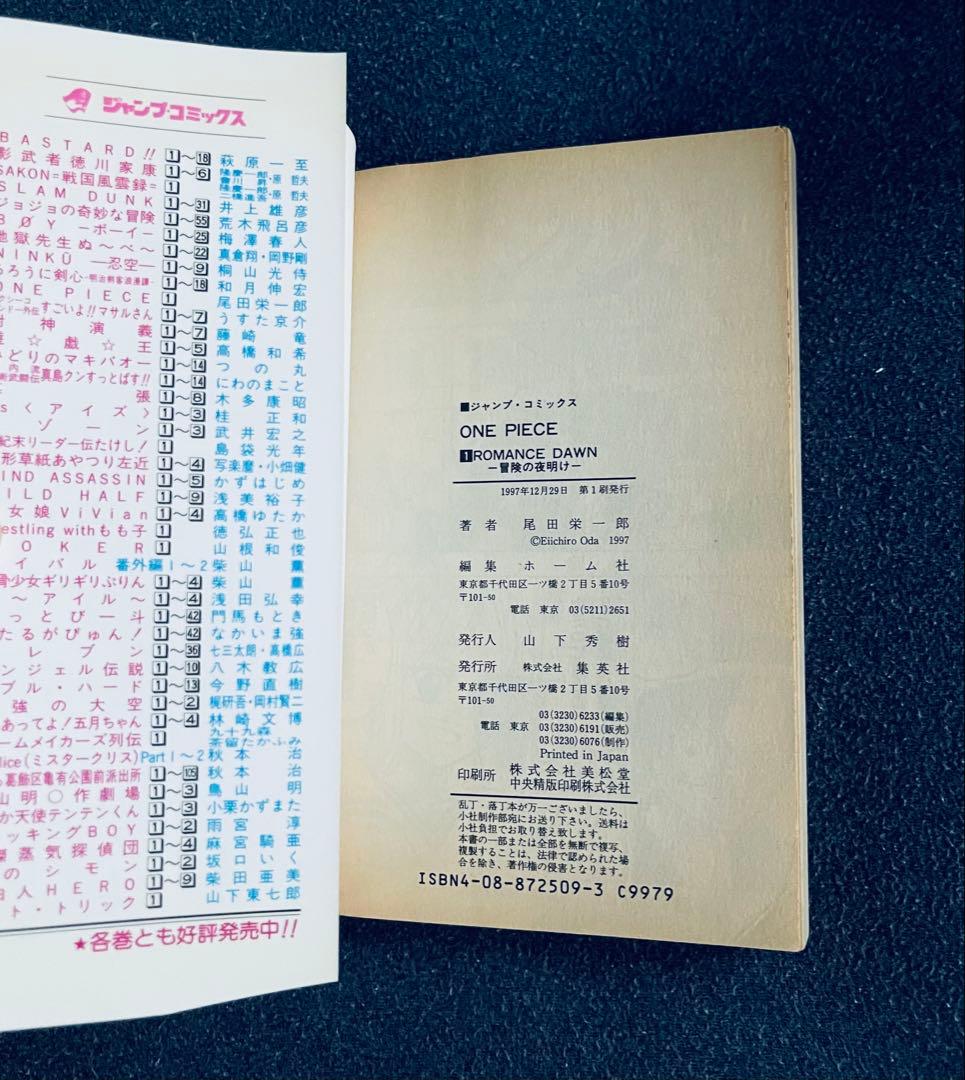 ジャンプ・コミックス
BASTARD!! 1～18 萩原一至
影武者徳川家康 1～6 隆慶一郎・原哲夫 會川昇
SAKON=戦国風雲録= 1 隆慶一郎・原哲夫 二橋進吾
SLAM DUNK 1～31 井上雄彦
ジョジョの奇妙な冒険 1～55 荒木飛呂彦
BØY －ボーイ－ 1～25 梅澤春人
地獄先生ぬ～べ～ 1～22 真倉翔・岡野剛
NINKŪ －忍空－ 1～9 桐山光侍
ろうに剣心－明治剣客浪漫譚－ 1～18 和月伸宏
ONE PIECE 1 尾田栄一郎
すごいよ!!マサルさん 1～7 うすた京介
神演義 1～7 藤崎竜
☆戯☆王 1～5 高橋和希
みどりのマキバオー 1～14 つの丸
真島クンすっとばす!! 1～14 にわのまこと
張 1～8 木多康昭
s〈アイズ〉 1～3 桂正和
ゾーン 1～3 武井宏之
紀末リーダー伝たけし! 1 島袋光年
形草紙あやつり左近 1～4 写楽麿・小畑健
IND ASSASSIN 1～5 かずはじめ
ILD HALF 1～9 浅美裕子
女娘ViVian 1～4 高橋ゆたか
estling withもも子 1 徳弘正也
OKER 1 山根和俊
イバル 番外編1～2 柴山薫
骨少女ギリギリぷりん 1～4 柴山薫
～アイル～ 1～4 浅田弘幸
っとび一斗 1～42 門馬もとき
たるがぴゅん! 1～42 なかいま強
レブン 1～36 七三太朗・高橋広
ンジェル伝説 1～10 八木教広
ブル・ハード 1～13 今野直樹
強の大空 1～2 梶研吾・岡村賢二
あってよ!五月ちゃん 1～4 林崎文博
ームメイカーズ列伝 1 九十九森 茶留たかふみ
lice(ミスタークリス) Part1～2 秋本治
葛飾区亀有公園前派出所 1～105 秋本治
山明○作劇場 1～3 鳥山明
か天使テンテンくん 1～3 小栗かずまた
ッキングBOY 1～2 雨宮淳
蒸気探偵団 1～4 麻宮騎亜
のシモン 1～2 坂口いく
人HERO 1～9 柴田亜美
ト・トリック 1 山下東七郎
★各巻とも好評発売中!!
■ジャンプ・コミックス
ONE PIECE
1 ROMANCE DAWN
－冒険の夜明け－
1997年12月29日 第1刷発行
著者 尾田栄一郎
©Eiichiro Oda 1997
編集 ホーム社
東京都千代田区一ツ橋2丁目5番10号
〒101-50
電話 東京 03(5211)2651
発行人 山下秀樹
発行所 株式会社 集英社
東京都千代田区一ツ橋2丁目5番10号
〒101-50
03(3230)6233(編集)
電話 東京 03(3230)6191(販売)
03(3230)6076(制作)
Printed in Japan
印刷所 株式会社美松堂
中央精版印刷株式会社
乱丁・落丁本が万一ございましたら、
小社制作部宛にお送り下さい。送料は
小社負担でお取り替え致します。
本書の一部または全部を無断で複写、
複製することは、法律で認められた場
合を除き、著作権の侵害となります。
ISBN4-08-872509-3 C9979